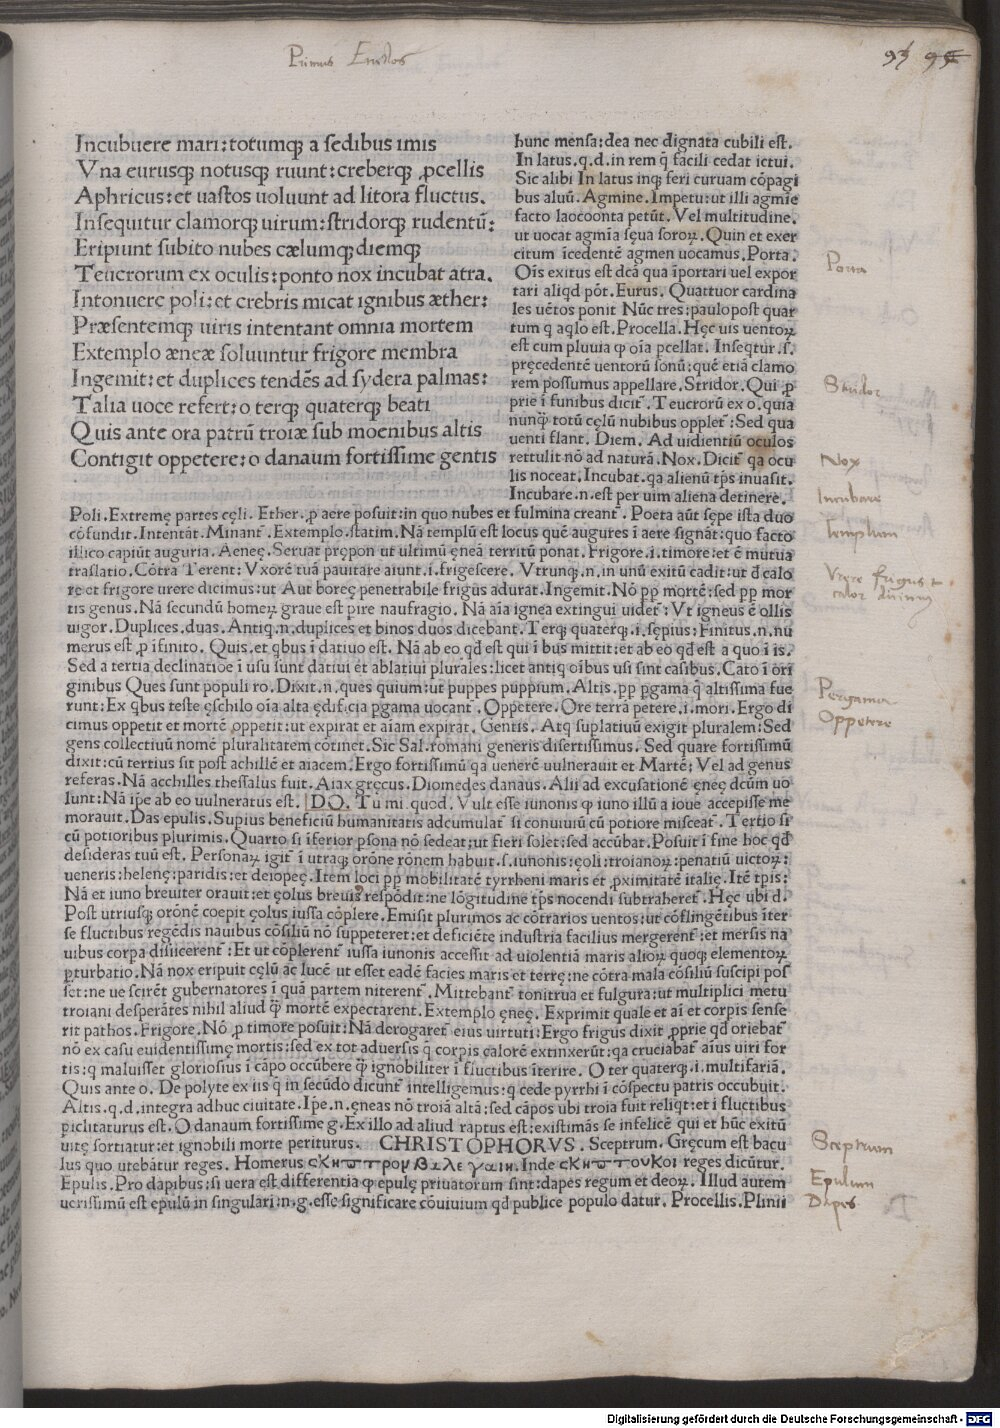 Primus Eneidos
Incubuere mari: totumq; a sedibus imis
Vna eurusq; notusq; ruunt: creberq; ꝓcellis
Aphricus: et uastos uoluunt ad litora fluctus.
Insequitur clamorq; uirum: stridorq; rudentũ:
Eripiunt subito nubes cælumq; diemq;
Teucrorum ex oculis: ponto nox incubat atra.
Intonuere poli: et crebris micat ignibus æther:
Præsentemq; uiris intentant omnia mortem
Extemplo æneæ soluuntur frigore membra
Ingemit: et duplices tendẽs ad sydera palmas:
Talia uoce refert: o terq; quaterq; beati
Quis ante ora patrũ troiæ sub moenibus altis
Contigit oppetere: o danaum fortissime gentis
hunc mensa: dea nec dignata cubili est.
In latus .q.d. in rem q̃ facili cedat ictui.
Sic alibi In latus inq; feri curuam cõpagi
bus aluũ. Agmine. Impetu: ut illi agmĩe
facto laocoonta petũt. Vel multitudine.
ut uocat agmĩa sęua sororꝝ. Quin et exer
citum ĩcedentẽ agmen uocamus. Porta.
Oĩs exitus est dcã qua ĩportari uel expor
tari aliqd põt. Eurus. Quattuor cardina
les uẽtos ponit Nũc tres: paulopost quar
tum q aqlo est. Procella. Hęc uis uentoꝝ
est cum pluuia ꝙ oĩa pcellat. Inseqtur .s.
pręcedentẽ uentorũ sonũ: quẽ etiã clamo
rem possumus appellare. Stridor. Qui ꝓ
prie ĩ funibus dicit̃. Teucrorũ ex o. quia
nunq̃ totũ cęlũ nubibus opplet̃: Sed qua
uenti flant. Diem. Ad uidientiũ oculos
rettulit nõ ad naturã. Nox. Dicit̃ qa ocu
lis noceat. Incubat. qa alienũ tp̃s inuasit.
Incubare .n. est per uim aliena detinere.
Poli. Extremę partes cęli. Ether. ꝓ aere posuit: in quo nubes et fulmina creant̃. Poeta aũt sępe ista duo
cõfundit. Intentãt. Minant̃. Extemplo. statim. Nã templũ est locus quẽ augures ĩ aere signãt: quo facto
illico capiũt auguria. Aeneę. Seruat prępon ut ultimũ ęneã territũ ponat. Frigore .i. timore: et ẽ mutua
traslatio. Cõtra Terent: Vxorẽ tuã pauitare aiunt .i. frigescere. Vtrunq; .n. in unũ exitũ cadit: ut d̃ calo
re et frigore urere dicimus: ut Aut boreę penetrabile frigus adurat. Ingemit. Nõ pp mortẽ: sed pp mor
tis genus. Nã secundũ homeꝝ graue est pire naufragio. Nã aĩa ignea extingui uidet̃: Vt igneus ẽ ollis
uigor. Duplices. duas. Antiq .n. duplices et binos duos dicebant. Terq; quaterq; .i. sępius: Finitus .n. nu
merus est ꝓ ĩfinito. Quis. et qbus ĩ datiuo est. Nã ab eo qd est qui ĩ bus mittit: et ab eo qd est a quo ĩ is.
Sed a tertia declinatiõe ĩ usu sunt datiui et ablatiui plurales: licet antiq oĩbus usi sint casibus. Cato ĩ ori
ginibus Ques sunt populi ro. Dixit .n. ques quium: ut puppes puppium. Altis. pp pgama q̃ altissima fue
runt: Ex qbus teste ęschilo oĩa alta ędificia pgama uocant̃. Oppetere. Ore terrã petere .i. mori. Ergo di
cimus oppetit et mortẽ oppetit: ut expirat et aĩam expirat. Gentis. Atq suplatiuũ exigit pluralem: Sed
gens collectiuũ nomẽ pluralitatem cõtinet. Sic Sal. romani generis disertissimus. Sed quare fortissimũ
dixit: cũ tertius sit post achillẽ et aiacem. Ergo fortissimũ qa uenerẽ uulnerauit et Martẽ; Vel ad genus
referas. Nã acchilles thessalus fuit. Aiax gręcus. Diomedes danaus. Alii ad excusationẽ ęneę dcũm uo
lunt: Nã ip̃e ab eo uulneratus est. DO. Tu mi quod. Vult esse iunonis ꝙ iuno illũ a ioue accepisse me
morauit. Das epulis. Supius beneficiũ humanitatis adcumulat̃ si conuiuiũ cũ potiore misceat̃. Tertio si
cũ potioribus plurimis. Quarto si ĩferior psona nõ sedeat: ut fieri solet: sed accũbat. Posuit ĩ fine hoc qd
desideras tuũ est. Personaꝝ igit̃ ĩ utraq; orõne rõnem habuit .s. iunonis: ęoli: troianoꝝ: penatiũ uictoꝝ:
ueneris: helenę: paridis: et deiopeę. Item loci pp mobilitatẽ tyrrheni maris et ꝓximitatẽ italię. Itẽ tp̃is:
Nã et iuno breuiter orauit: et ęolus breuis respõdit: ne lõgitudine tp̃s nocendi subtraheret̃. Hęc ubi d.
Post utriusq; orõnẽ coepit ęolus iussa cõplere. Emisit plurimos ac cõtrarios uentos: ut cõflingẽtibus ĩter
se fluctibus regẽdis nauibus cõsiliũ nõ suppeteret: et deficiẽte industria facilius mergerent̃: et mersis na
uibus corpa disiicerent̃: Et ut cõplerent̃ iussa iunonis accessit ad uiolentiã maris alioꝝ quoq; elementoꝝ
pturbatio. Nã nox eripuit cęlũ ac lucẽ ut esset eadẽ facies maris et terrę: ne cõtra mala cõsiliũ suscipi pos
set: ne ue scirẽt gubernatores ĩ quã partem niterent̃. Mittebant̃ tonitrua et fulgura: ut multiplici metu
troiani desperãtes nihil aliud q̃ mortẽ expectarent. Extemplo ęneę. Exprimit quale et aĩ et corpis sense
rit pathos. Frigore. Nõ ꝓ timore posuit: Nã derogaret̃ eius uirtuti: Ergo frigus dixit ꝓprie qd oriebat̃
nõ ex casu euidentissimę mortis: sed ex tot aduersis q̃ corpis calorẽ extinxerũt: qa cruciabat̃ aĩus uiri for
tis: q maluisset gloriosius ĩ cãpo occũbere q̃ ignobiliter ĩ fluctibus ĩterire. O ter quaterq; .i. multifariã.
Quis ante o. De polyte ex iis q̃ in secũdo dicunt̃ intelligemus: q cede pyrrhi ĩ cõspectu patris occubuit.
Altis .q.d. integra adhuc ciuitate. Ip̃e .n. ęneas nõ troiã altã: sed cãpos ubi troia fuit reliqt: et ĩ fluctibus
piclitaturus est. O danaum fortissime g. Ex illo ad aliud raptus est: existimãs se infelicẽ qui et hũc exitũ
uitę sortiatur: et ignobili morte periturus. CHRISTOPHORVS. Sceptrum. Gręcum est bacu
lus quo utebãtur reges. Homerus Inde reges dicũtur.
Epulis. Pro dapibus: si uera est differentia ꝙ epulę priuatorum sint: dapes regum et deoꝝ. Illud autem
uerissimũ est epulũ in singulari: n.g. esse significare cõuiuium qd publice populo datur. Procellis. Plinii
Porta
Stridor
Nox
Incubare
Templum
Vrere frigus et
calor
Pergama
Oppetere
Sceptrum
Epulum
Dapes
Digitalisierung gefördert durch die Deutsche Forschungsgemeinschaft - DFG